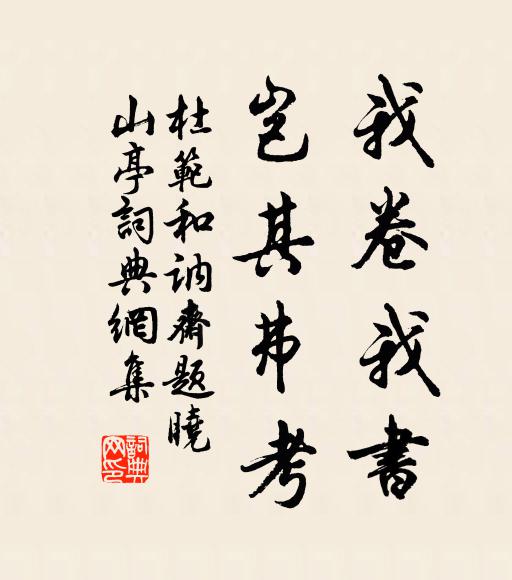 我卷我書
豈其弗考
杜範和訥齋題曉
山亭詞典網集
詞典
网印